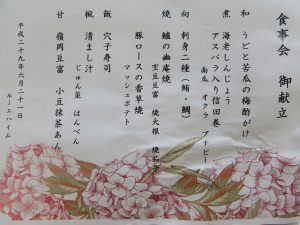 食事会　御献立
和　うどと苦瓜の梅酢がけ
煮　海老しんじょう
アスパラ入り信田巻
南瓜　オクラ　アナゴ
向　刺身二種（鮪・鯛）
焼　鱸の幽庵焼
空豆豆富　焼大根
豚ロースの香草焼
マッシュポテト
飯　穴子寿司
椀　清まし汁
じゅん菜　はんぺん
甘　嶺岡豆富　小豆抹茶あん
平成二十九年六月二十一日
ルーエハイム